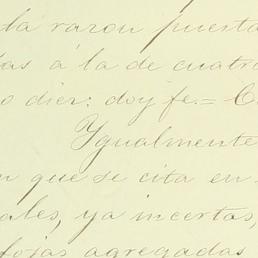 da razon puesta
as á la de cuatro
o diez: doy fe.=
Ygualmente
n que se cita en
ales, ya incertas,
fojas agregadas